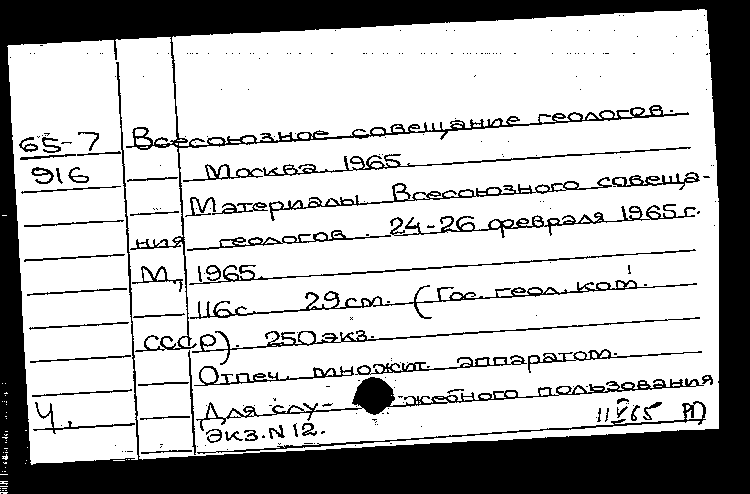 65-7 Всесоюзное совещание геологов.
916 Москва. 1965.
Материалы Всесоюзного совеща-
ния геологов. 24-26 февраля 1965 г.
М., 1965.
116 с. 29 см. (Гос. геол. ком.
СССР). 250 экз.
Отпеч. множит. аппаратом.
Ч. Для слу- жебного пользования
Экз. N 12. 11 V 65 РП